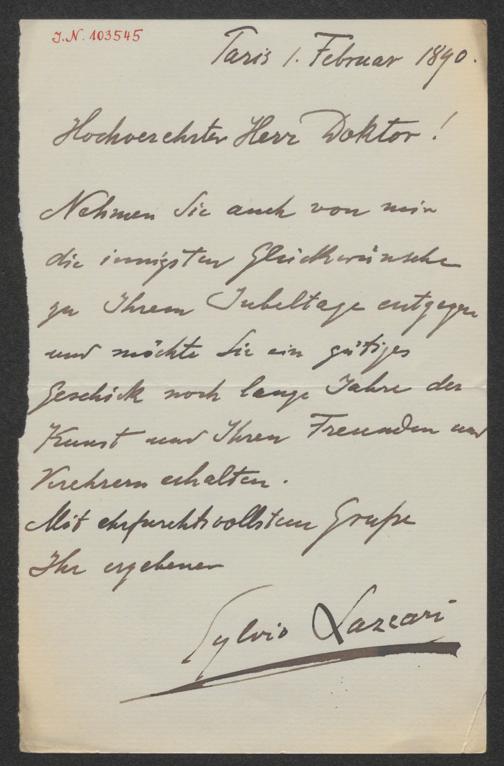 I.N. 103545
Paris 1. Februar 1890.
Hochverehrter Herr Doktor!
Nehmen Sie auch von mir
die innigsten Glückwünsche
zu Ihrem Jubeltage entgegen
und möchte Sie ein gütiges
Geschick noch lange Jahre der
Kunst und Ihren Freunden und
Verehrern erhalten.
Mit ehrfurchtsvollstem Gruße
Ihr ergebener
Sylvio Lazzari